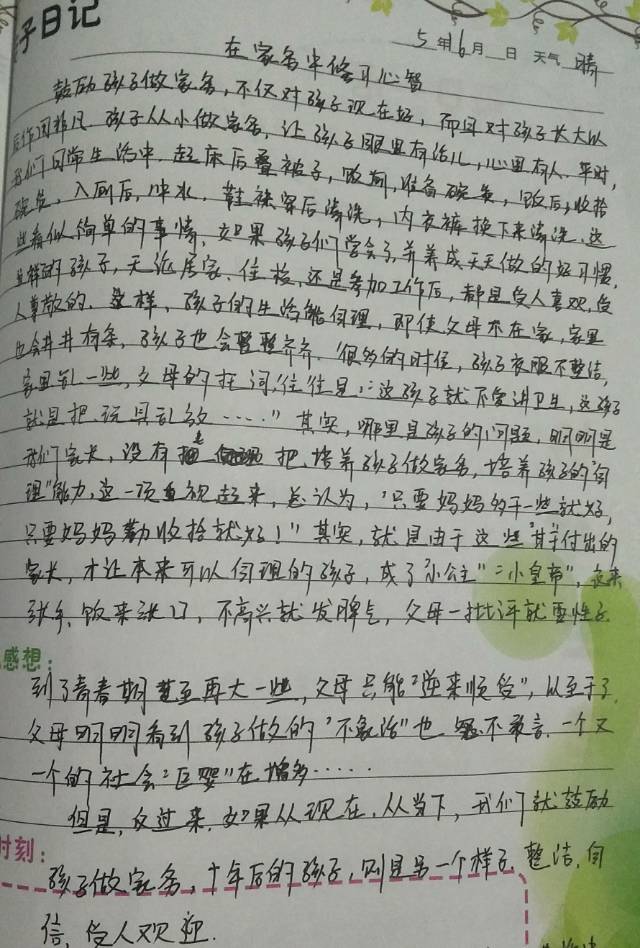 子日记
5年6月 日 天气 晴
在家务中修习心智
鼓励孩子做家务,不仅对孩子现在好,而且对孩子长大以
后作用非凡。孩子从小做家务,让孩子眼里有活儿,心里有人。平时,
我们日常生活中,起床后叠被子,饭前,准备碗筷,饭后,收拾
碗筷,入厕后,冲水,鞋袜穿后清洗,内衣裤换下来清洗,这
些看似简单的事情,如果孩子们学会了,并养成天天做的好习惯,
这样的孩子,无论居家、住校,还是参加工作后,都是受人喜欢,受
人尊敬的。这样,孩子的生活能自理,即使父母不在家,家里
也会井井有条,孩子也会整整齐齐。很多的时候,孩子衣服不整洁,
家里乱一些,父母的托词,往往是:“这孩子就不爱讲卫生,这孩子
就是把玩具乱放……”其实,哪里是孩子的问题,明明是
我们家长,没有把培养孩子做家务,培养孩子的“自
理”能力,这一项重视起来,总认为,“只要妈妈多干一些就好,
只要妈妈勤收拾就好!”其实,就是由于这些“甘”付出的
家长,才让本来可以自理的孩子,成了“小公主”“小皇帝”,衣来
张手,饭来张口,不高兴就发脾气,父母一批评就耍性子。
感想:
到了青春期甚至再大一些,父母只能“逆来顺受”,以至于了
父母明明看到孩子做的“不象话”也不敢言,一个又
一个的社会“巨婴”在增多……
但是,反过来,如果从现在,从当下,我们就鼓励
时刻:
孩子做家务,十年后的孩子,则是另一个样子,整洁,自
信,受人欢迎.